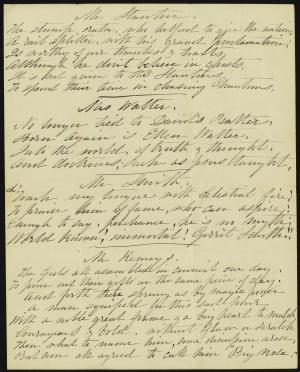 Mr Stanton.
The stump orator, who helped to save the nation,
A rail splitter, with his grand proclamation;
Is worthy of our thanks & toasts,
Although he don't believe in ghosts,
It is not given to the Stantons,
To spend their time in chasing phantoms.
Mrs Walter.
No longer tied to David's Psalter,
Born again is Ellen Walter,
Into the world, of truth & thought,
And doctrines, such as Jesus taught,
Mr. Smith.
Oh! Touch my tongue with celestial fire;
To praise him of fame, who can aspire;
Enough to say, perchance, he is no myth,
World known, immortal! Gerrit Smith.
Mr Remey.
The Gods all assembled in council one day.
To join all their gifts in the same piece of clay.
And forth there sprung as by magic power
A man, in this very hour
With a noble great frame & a big heart to match
Courageous & bold, without flaw or scratch
Then what to name him, some discussion arose
But soon all agreed to call him "Big Nose."